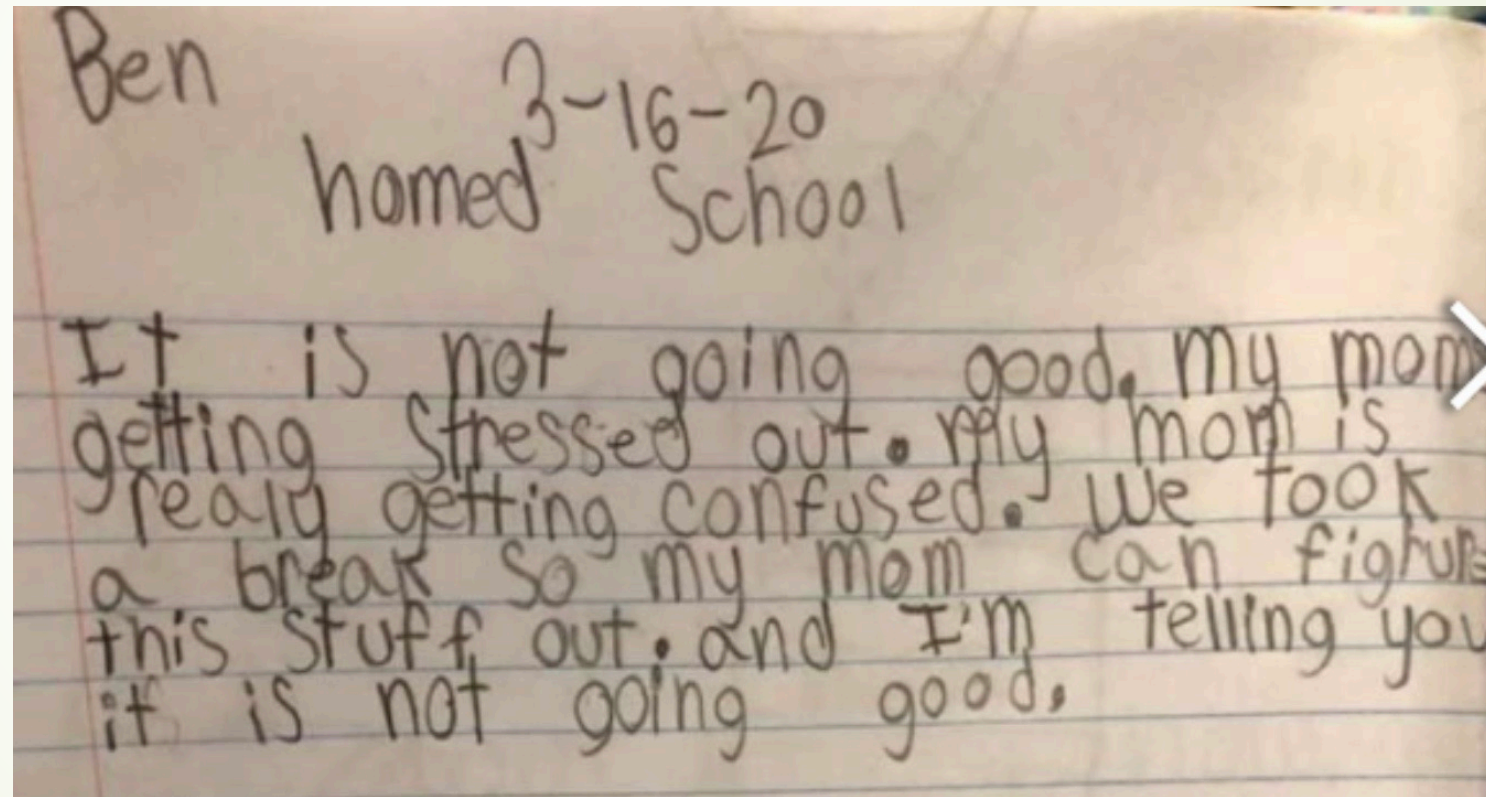 Ben
3-16-20
homed School
It is not going good. my mom
getting stressed out. My mom is
realy getting confused. we took
a break so my mom can fighure
this stuff out. and I'm telling you
it is not going good.